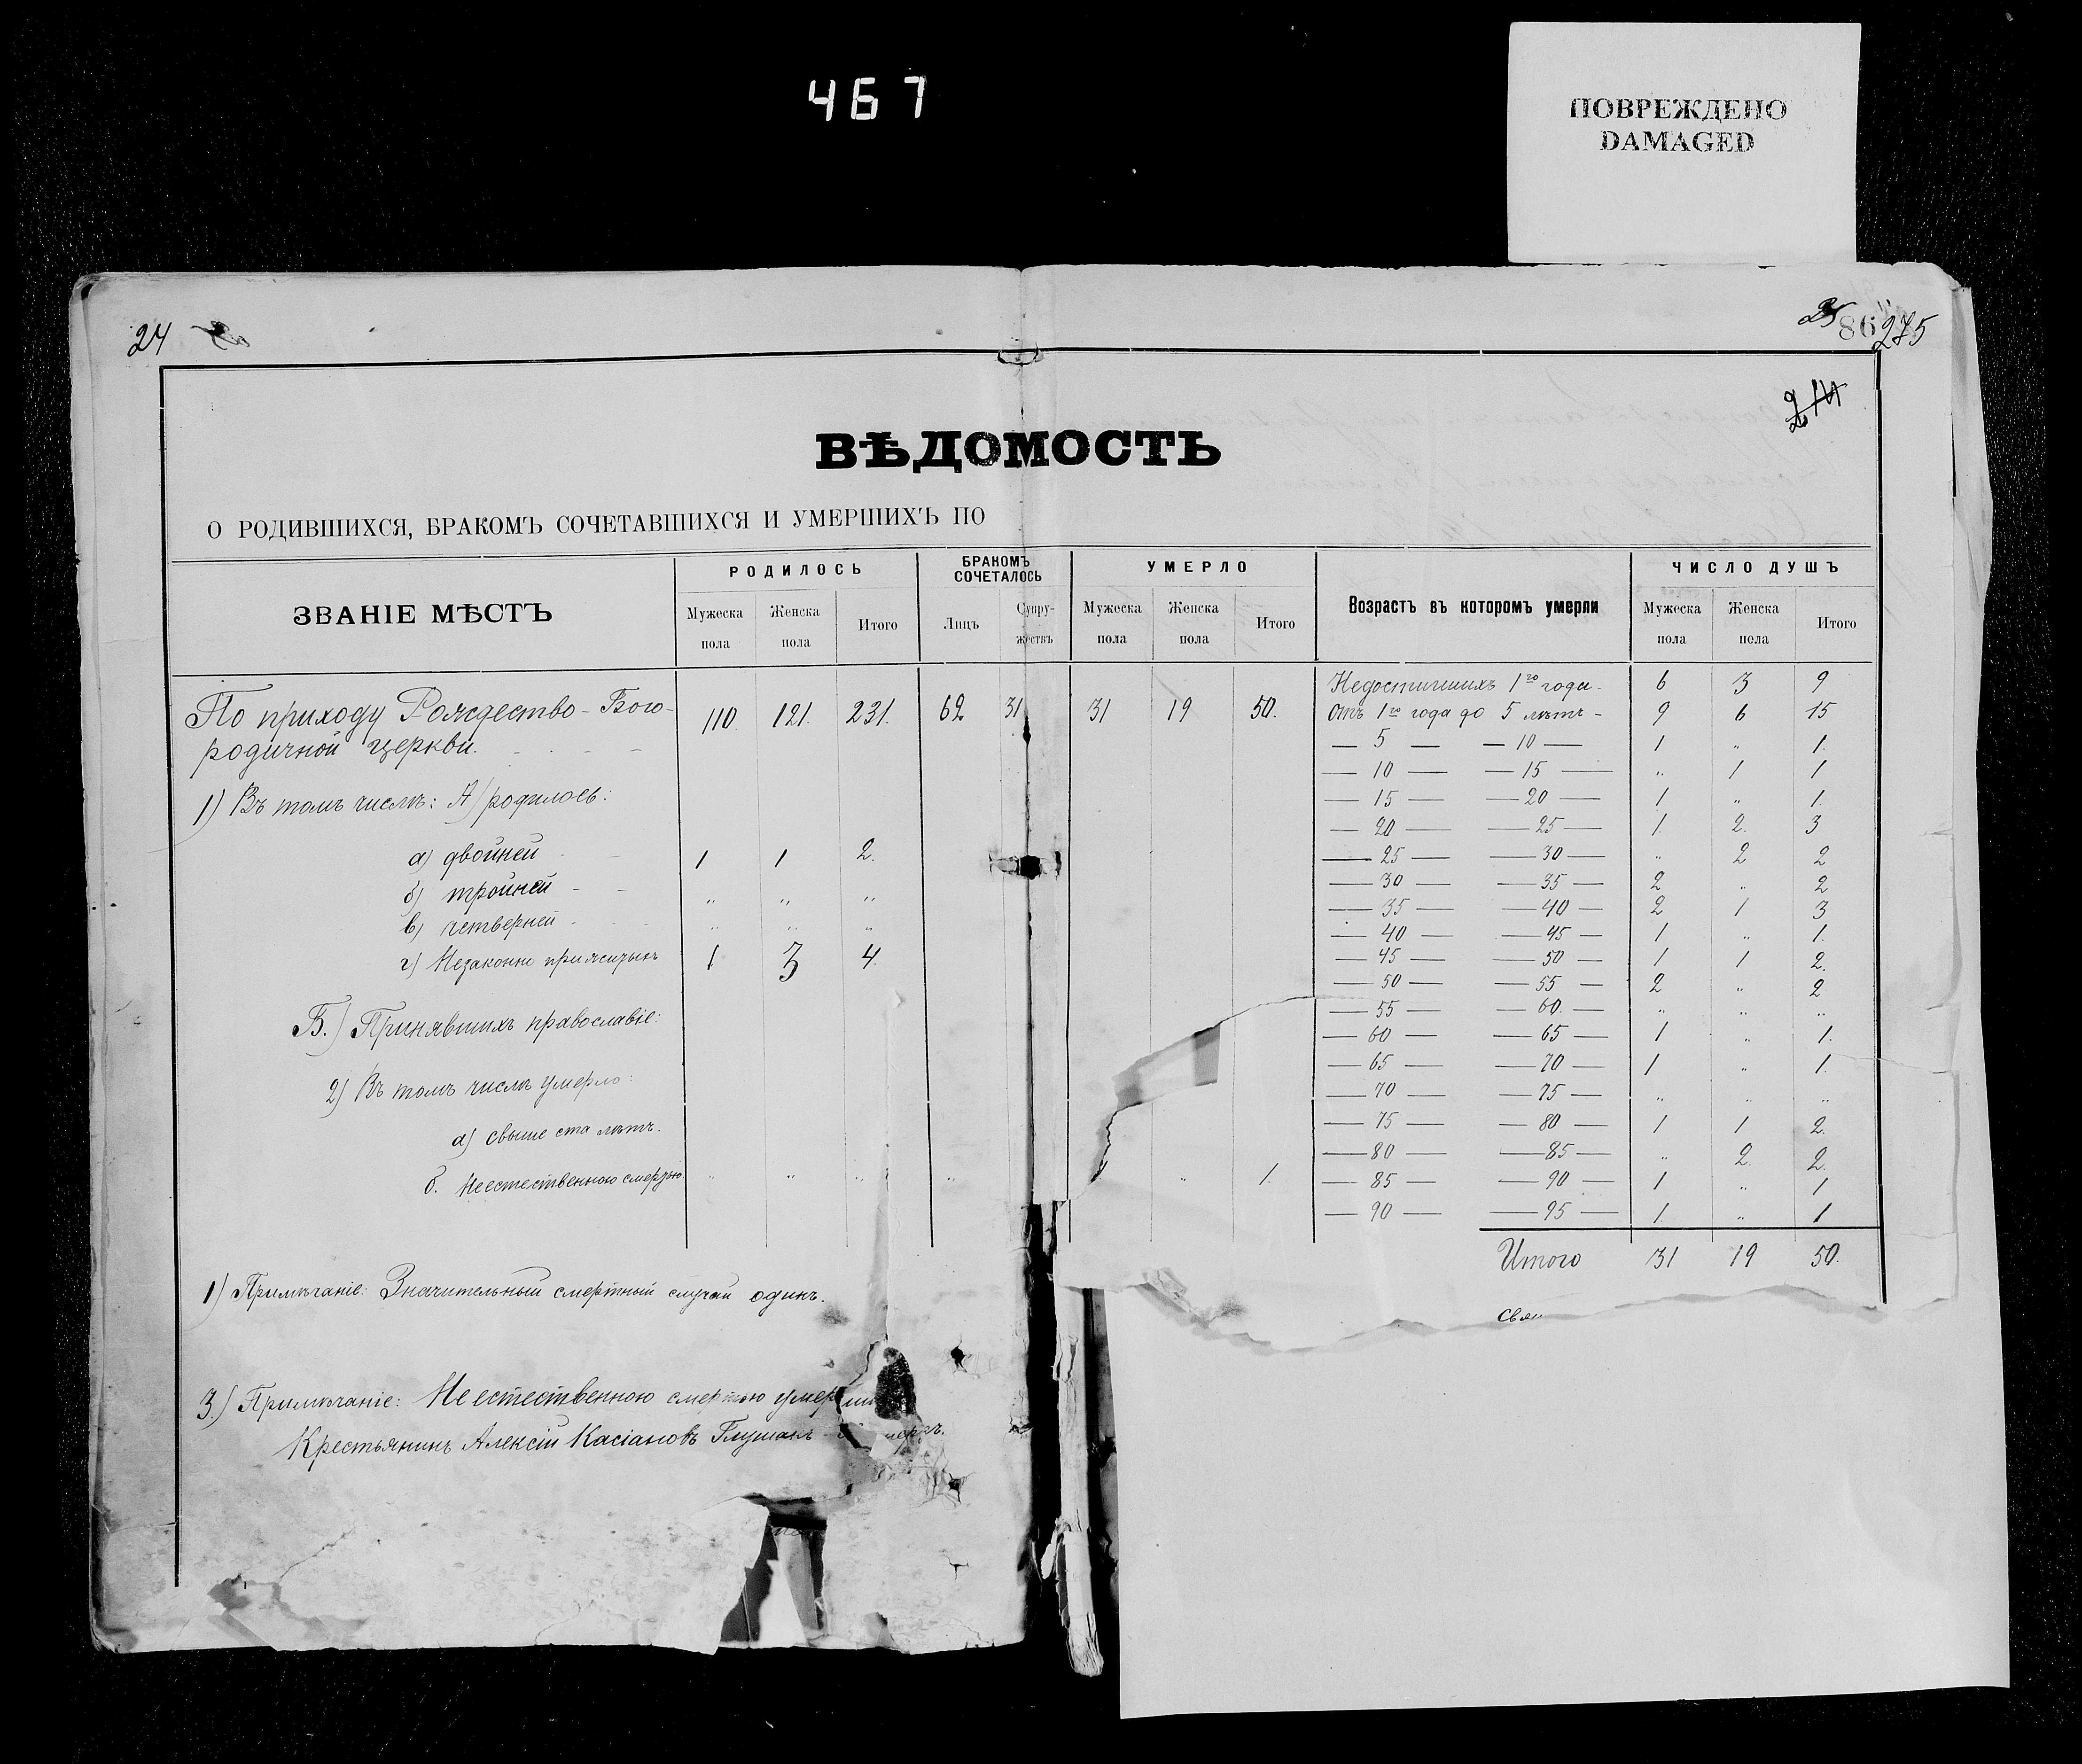 467
ПОВРЕЖДЕНО
DAMAGED
24
25
86
275
214
ВѢДОМОСТЬ
О РОДИВШИХСЯ, БРАКОМЪ СОЧЕТАВШИХСЯ И УМЕРШИХЪ ПО
ЗВАНІЕ МѢСТЪ
РОДИЛОСЬ
Мужеска пола
Женска пола
Итого
БРАКОМЪ СОЧЕТАЛОСЬ
Лицъ
Супружествъ
УМЕРЛО
Мужеска пола
Женска пола
Итого
Возрастъ въ которомъ умерли
ЧИСЛО ДУШЪ
Мужеска пола
Женска пола
Итого
По приходу Рождество-Бого-
родичной церкви.
110 121. 231. 62 31 31 19 50.
1) Въ томъ числѣ: А) родилось:
а) двойней 1 1 2.
б) тройней - - „ „ „
в) четверней - „ „ „
г) Незаконно прижитыхъ 1 3 4.
Б.) Принявшихъ православіе:
2) Въ томъ числѣ умерло:
а) свыше ста лѣтъ.
б. Неестественною смертью „ „ „ „ „ 1.
Недостигшихъ 1го года. 6 3 9
Отъ 1го года до 5 лѣтъ - 9 6 15
— 5 — — 10 — 1 „ 1.
— 10 — — 15 — „ 1 1
— 15 — — 20 — 1 „ 1.
— 20 — — 25 — 1. 2. 3
— 25 — — 30 — „ 2 2
— 30 — — 35 — 2 „ 2
— 35 — — 40 — 2 1 3
— 40 — — 45 — 1 „ 1.
— 45 — — 50 — 1 1 2.
— 50 — — 55 — 2 „ 2
— 55 — — 60. — „ „ „
— 60 — — 65 — 1 „ 1.
— 65 — — 70 — 1 „ 1.
— 70 — — 75 — „ „ „
— 75 — — 80 — 1 1 2.
— 80 — — 85 — „ 2 2.
— 85 — — 90 — 1 „ 1
— 90 — — 95 — 1. „ 1
Итого 31 19 50.
1) Примѣчаніе: Значительный смертный случай одинъ.
3.) Примѣчаніе: Неестественною смертью
Крестьянинъ Алексій Касіановъ Глушакъ